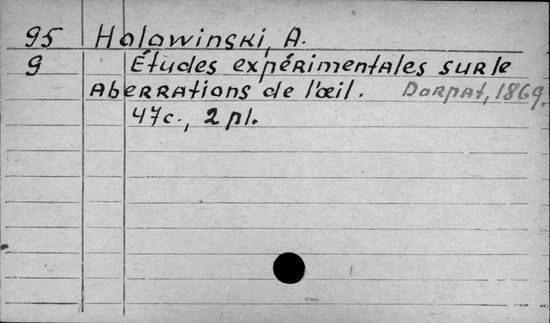 95 Holowinski, A.
9 Études expérimentales sur le
Aberrations de l'œil. Dorpat, 1869.
47c., 2 pl.